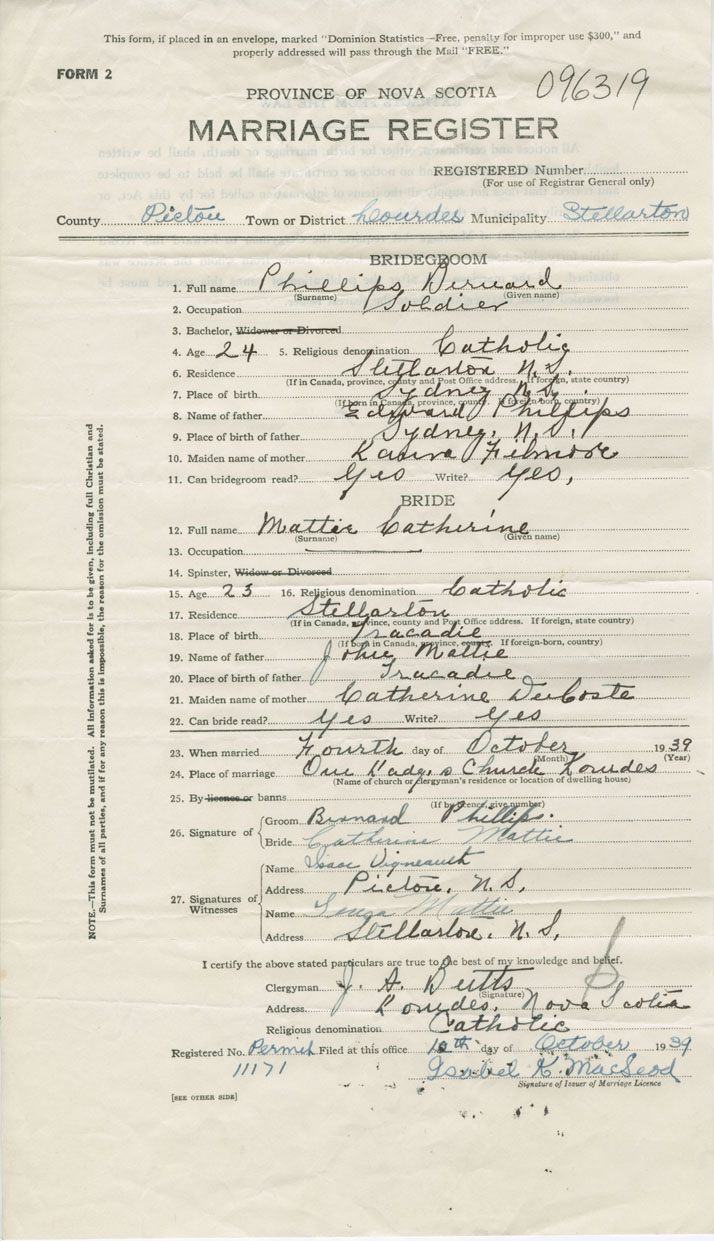 This form, if placed in an envelope, marked "Dominion Statistics—Free, penalty for improper use $300," and
properly addressed will pass through the Mail "FREE."
FORM 2
096319
PROVINCE OF NOVA SCOTIA
MARRIAGE REGISTER
REGISTERED Number
(For use of Registrar General only)
County Pictou Town or District Lourdes Municipality Stellarton
BRIDEGROOM
1. Full name Phillips Bernard
(Surname) (Given name)
2. Occupation Soldier
3. Bachelor, Widower or Divorced
4. Age 24 5. Religious denomination Catholic
6. Residence Stellarton N.S.
(If in Canada, province, county and Post Office address. If foreign, state country)
7. Place of birth Sydney N.S.
(If born in Canada, province, county. If foreign-born, country)
8. Name of father Edward Phillips
9. Place of birth of father Sydney, N.S.
10. Maiden name of mother Filmore
11. Can bridegroom read? Yes Write? Yes,
BRIDE
12. Full name Mattie Catherine
(Surname) (Given name)
13. Occupation
14. Spinster, Widow or Divorced
15. Age 23 16. Religious denomination Catholic
17. Residence Stellarton
(If in Canada, province, county and Post Office address. If foreign, state country)
18. Place of birth Tracadie
(If born in Canada, province, county. If foreign-born, country)
19. Name of father John Mattie
20. Place of birth of father Tracadie
21. Maiden name of mother Catherine DeCoste
22. Can bride read? Yes Write? Yes
23. When married Fourth day of October 1939
(Month) (Year)
24. Place of marriage Our Lady's Church Lourdes
(Name of church or clergyman's residence or location of dwelling house)
25. By licence or banns
(If by licence, give number)
26. Signature of Groom Bernard Phillips.
Bride Catherine Mattie
27. Signatures of Witnesses
Name Isaac Vigneault
Address Pictou, N.S.
Name Mattie
Address Stellarton, N.S.
I certify the above stated particulars are true to the best of my knowledge and belief.
Clergyman J. A. Butts
(Signature)
Address Lourdes, Nova Scotia
Religious denomination Catholic
Registered No. Permit Filed at this office 10th day of October 1939
11171 Isabel K. MacLeod
Signature of Issuer of Marriage Licence
[SEE OTHER SIDE]
NOTE.—This form must not be mutilated. All information asked for is to be given, including full Christian and
Surnames of all parties, and if for any reason this is impossible, the reason for the omission must be stated.